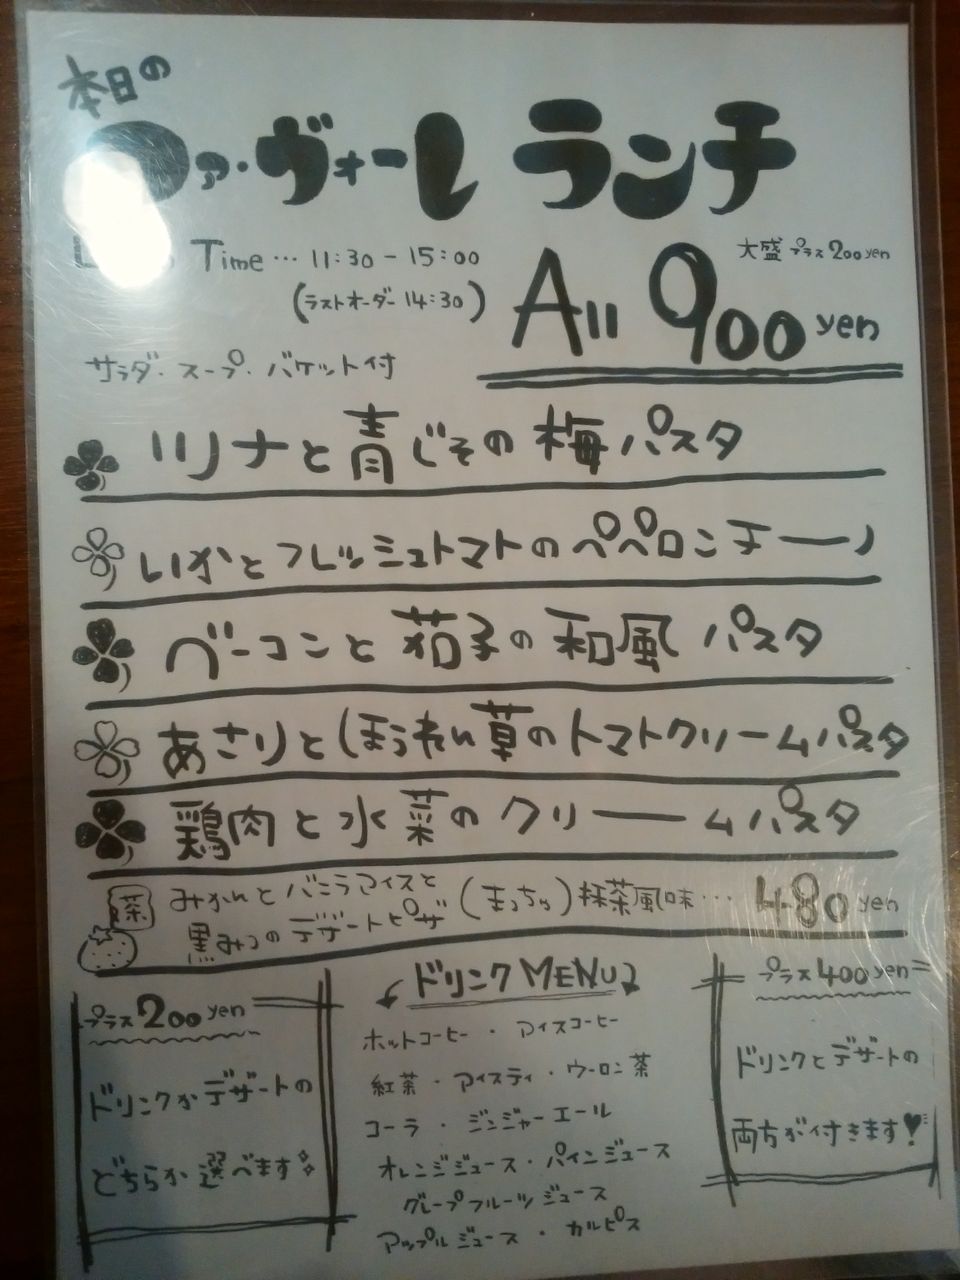 本日の
ファ・ヴォーレ ランチ
Time… 11:30 - 15:00
(ラストオーダー 14:30)
大盛 プラス 200 yen
All 900 yen
サラダ・スープ・バケット付
ツナと青じその梅パスタ
いかとフレッシュトマトのペペロンチーノ
ベーコンと茄子の和風パスタ
あさりとほうれい草のトマトクリームパスタ
鶏肉と水菜のクリームパスタ
茶
みかんとバニラアイスと
黒みつのデザートピザ
(まっちゃ)抹茶風味… 480 yen
プラス 200 yen
ドリンクかデザートの
どちらか選べます
ドリンク MENU
ホットコーヒー・アイスコーヒー
紅茶・アイスティ・ウーロン茶
コーラ・ジンジャーエール
オレンジジュース・パインジュース
グレープフルーツジュース
アップルジュース・カルピス
プラス 400 yen
ドリンクとデザートの
両方が付きます!